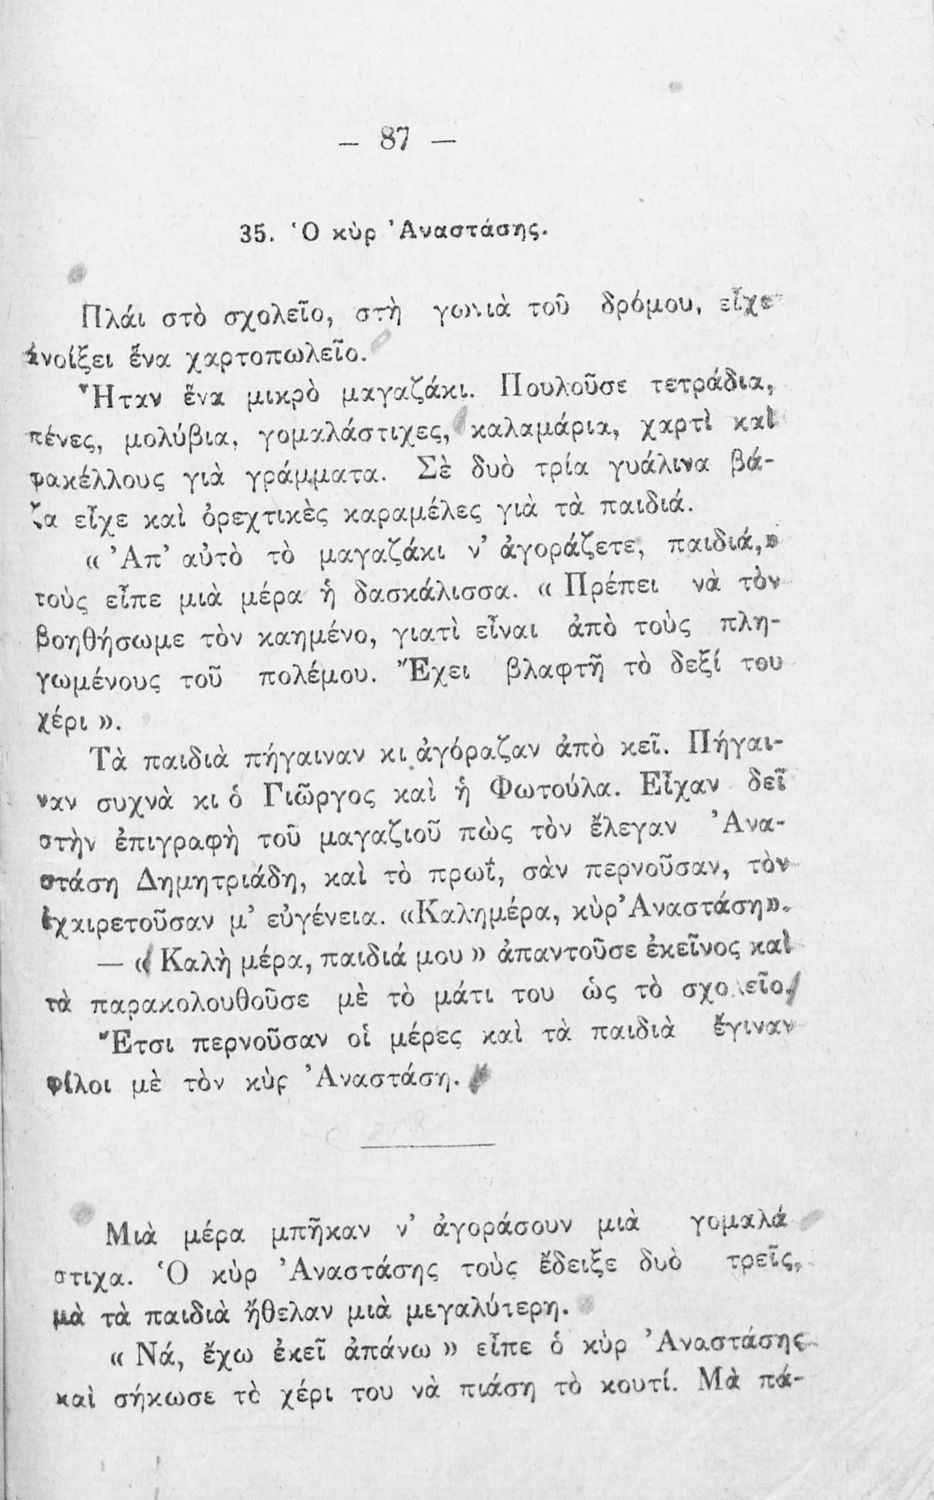 — 87 —
35. Ὁ κὺρ Ἀναστάσης.
Πλάι στὸ σχολεῖο, στὴ γωνιὰ τοῦ δρόμου, εἶχε
ἀνοίξει ἕνα χαρτοπωλεῖο.
Ἦταν ἕνα μικρὸ μαγαζάκι. Πουλοῦσε τετράδια,
πένες, μολύβια, γομαλάστιχες, καλαμάρια, χαρτὶ καὶ
φακέλλους γιὰ γράμματα. Σὲ δυὸ τρία γυάλινα βά-
ζα εἶχε καὶ ὀρεχτικὲς καραμέλες γιὰ τὰ παιδιά.
« Ἀπ’ αὐτὸ τὸ μαγαζάκι ν’ ἀγοράζετε, παιδιά,»
τοὺς εἶπε μιὰ μέρα ἡ δασκάλισσα. « Πρέπει νὰ τὸν
βοηθήσωμε τὸν καημένο, γιατὶ εἶναι ἀπὸ τοὺς πλη-
γωμένους τοῦ πολέμου. Ἔχει βλαφτῆ τὸ δεξί του
χέρι ».
Τὰ παιδιὰ πήγαιναν κι ἀγόραζαν ἀπὸ κεῖ. Πήγαι-
ναν συχνὰ κι ὁ Γιῶργος καὶ ἡ Φωτούλα. Εἶχαν δεῖ
στὴν ἐπιγραφὴ τοῦ μαγαζιοῦ πὼς τὸν ἔλεγαν Ἀνα-
στάση Δημητριάδη, καὶ τὸ πρωΐ, σὰν περνοῦσαν, τὸν
ἐχαιρετοῦσαν μ’ εὐγένεια. «Καλημέρα, κὺρ Ἀναστάση».
— « Καλὴ μέρα, παιδιά μου » ἀπαντοῦσε ἐκεῖνος καὶ
τὰ παρακολουθοῦσε μὲ τὸ μάτι του ὡς τὸ σχολεῖο.
Ἔτσι περνοῦσαν οἱ μέρες καὶ τὰ παιδιὰ ἔγιναν
φίλοι μὲ τὸν κὺρ Ἀναστάση.
Μιὰ μέρα μπῆκαν ν’ ἀγοράσουν μιὰ γομαλά
στιχα. Ὁ κὺρ Ἀναστάσης τοὺς ἔδειξε δυὸ τρεῖς,
μὰ τὰ παιδιὰ ἤθελαν μιὰ μεγαλύτερη.
« Νά, ἔχω ἐκεῖ ἀπάνω » εἶπε ὁ κὺρ Ἀναστάσης
καὶ σήκωσε τὸ χέρι του νὰ πιάση τὸ κουτί. Μὰ πά-